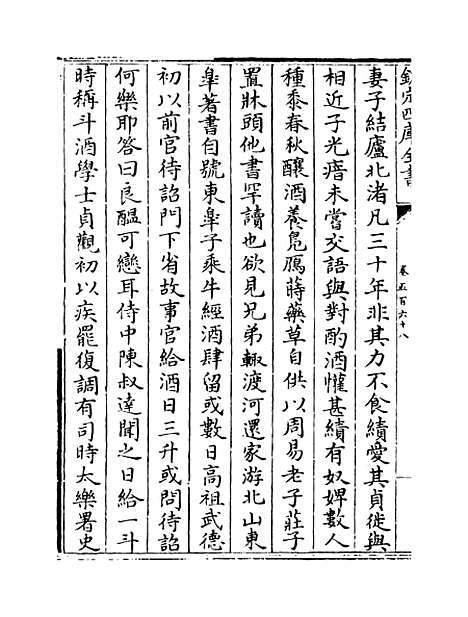 欽定四庫全書
卷五百六十八
妻子結廬北渚凡三十年非其力不食績愛其貞徙與
相近子光瘖未嘗交語與對酌酒懽甚績有奴婢數人
種黍春秋釀酒養鳬鴈蒔藥草自供以周易老子莊子
置牀頭他書罕讀也欲見兄弟輙渡河還家游北山東
臯著書自號東臯子乘牛經酒肆留或數日高祖武德
初以前官待詔門下省故事官給酒日三升或問待詔
何樂耶答曰良醖可戀耳侍中陳叔達聞之日給一斗
時稱斗酒學士貞觀初以疾罷復調有司時太樂署史